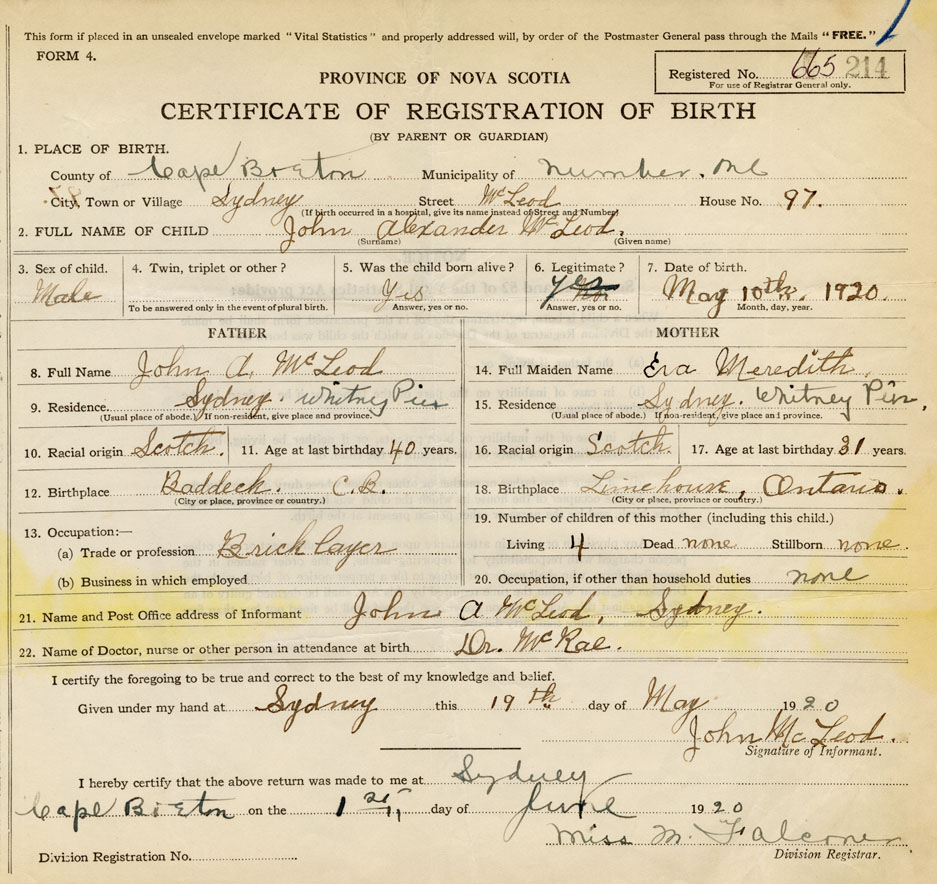 This form if placed in an unsealed envelope marked "Vital Statistics" and properly addressed will, by order of the Postmaster General pass through the Mails "FREE."
FORM 4.
Registered No. 665 214
For use of Registrar General only.
PROVINCE OF NOVA SCOTIA
CERTIFICATE OF REGISTRATION OF BIRTH
(BY PARENT OR GUARDIAN)
1. PLACE OF BIRTH.
County of Cape Breton Municipality of Number. One
City, Town or Village Sydney Street McLeod House No. 97.
(If birth occurred in a hospital, give its name instead of Street and Number)
2. FULL NAME OF CHILD John Alexander McLeod.
(Surname) (Given name)
3. Sex of child. 4. Twin, triplet or other? 5. Was the child born alive? 6. Legitimate? 7. Date of birth.
Male Yes yes May 10th. 1920.
To be answered only in the event of plural birth. Answer, yes or no. Answer, yes or no. Month, day, year.
FATHER MOTHER
8. Full Name John A. McLeod 14. Full Maiden Name Eva Meredith.
9. Residence. Sydney. Whitney Pier 15. Residence Sydney. Whitney Pier.
(Usual place of abode.) If non-resident, give place and province. (Usual place of abode.) If non-resident, give place and province.
10. Racial origin Scotch. 11. Age at last birthday 40 years. 16. Racial origin Scotch. 17. Age at last birthday 31 years.
12. Birthplace Baddeck. C.B. 18. Birthplace Limehouse, Ontario.
(City or place, province or country.) (City or place, province or country.)
13. Occupation:— 19. Number of children of this mother (including this child.)
(a) Trade or profession Brick layer Living 4 Dead none Stillborn none.
(b) Business in which employed 20. Occupation, if other than household duties none
21. Name and Post Office address of Informant John A McLeod, Sydney.
22. Name of Doctor, nurse or other person in attendance at birth Dr. McRae.
I certify the foregoing to be true and correct to the best of my knowledge and belief.
Given under my hand at Sydney this 19th day of May 1920
John McLeod.
Signature of Informant.
I hereby certify that the above return was made to me at Sydney
Cape Breton on the 1st, day of June 1920
Miss M. Falconer
Division Registrar.
Division Registration No.